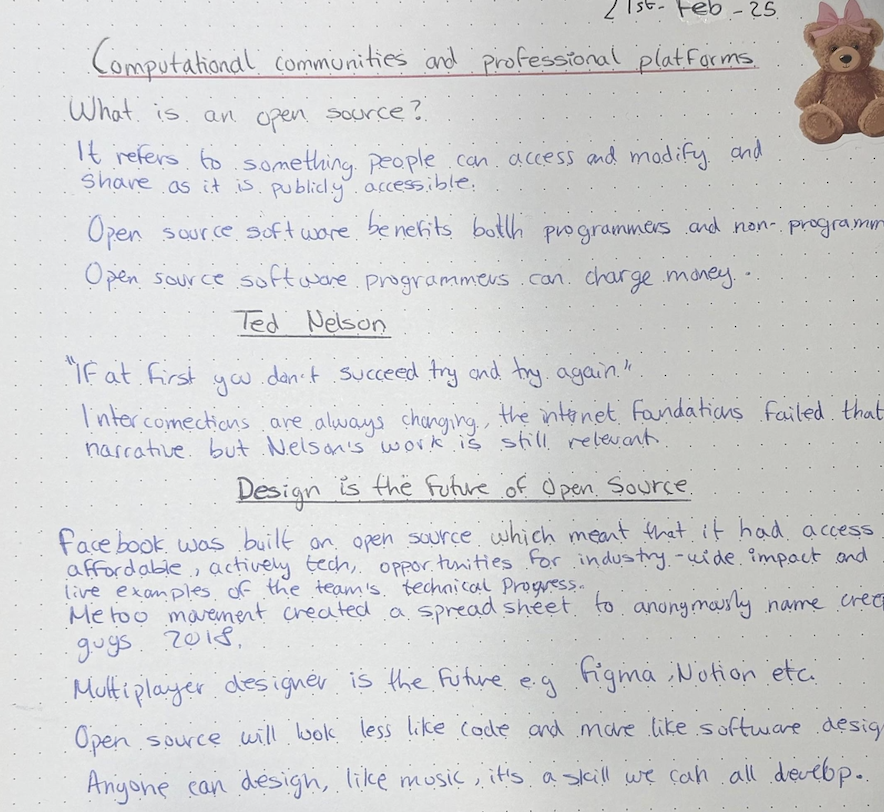 21st - Feb - 25
Computational communities and professional platforms
What is an open source?
It refers to something people can access and modify and
share as it is publicly accessible.
Open source software benefits botth programmers and non-programm
Open source software programmers can charge money.
Ted Nelson
"If at first you don't succeed try and try again."
Interconnections are always changing, the internet foundations failed that
narrative but Nelson's work is still relevant
Design is the future of Open Source
Facebook was built on open source which meant that it had access
affordable, actively tech, opportunities for industry-wide impact and
live examples of the team's technical progress.
Me too movement created a spreadsheet to anonymously name cree
guys 2018.
Multiplayer designer is the future e.g figma, Notion etc.
Open source will look less like code and more like software desig
Anyone can design, like music, it's a skill we can all develop.